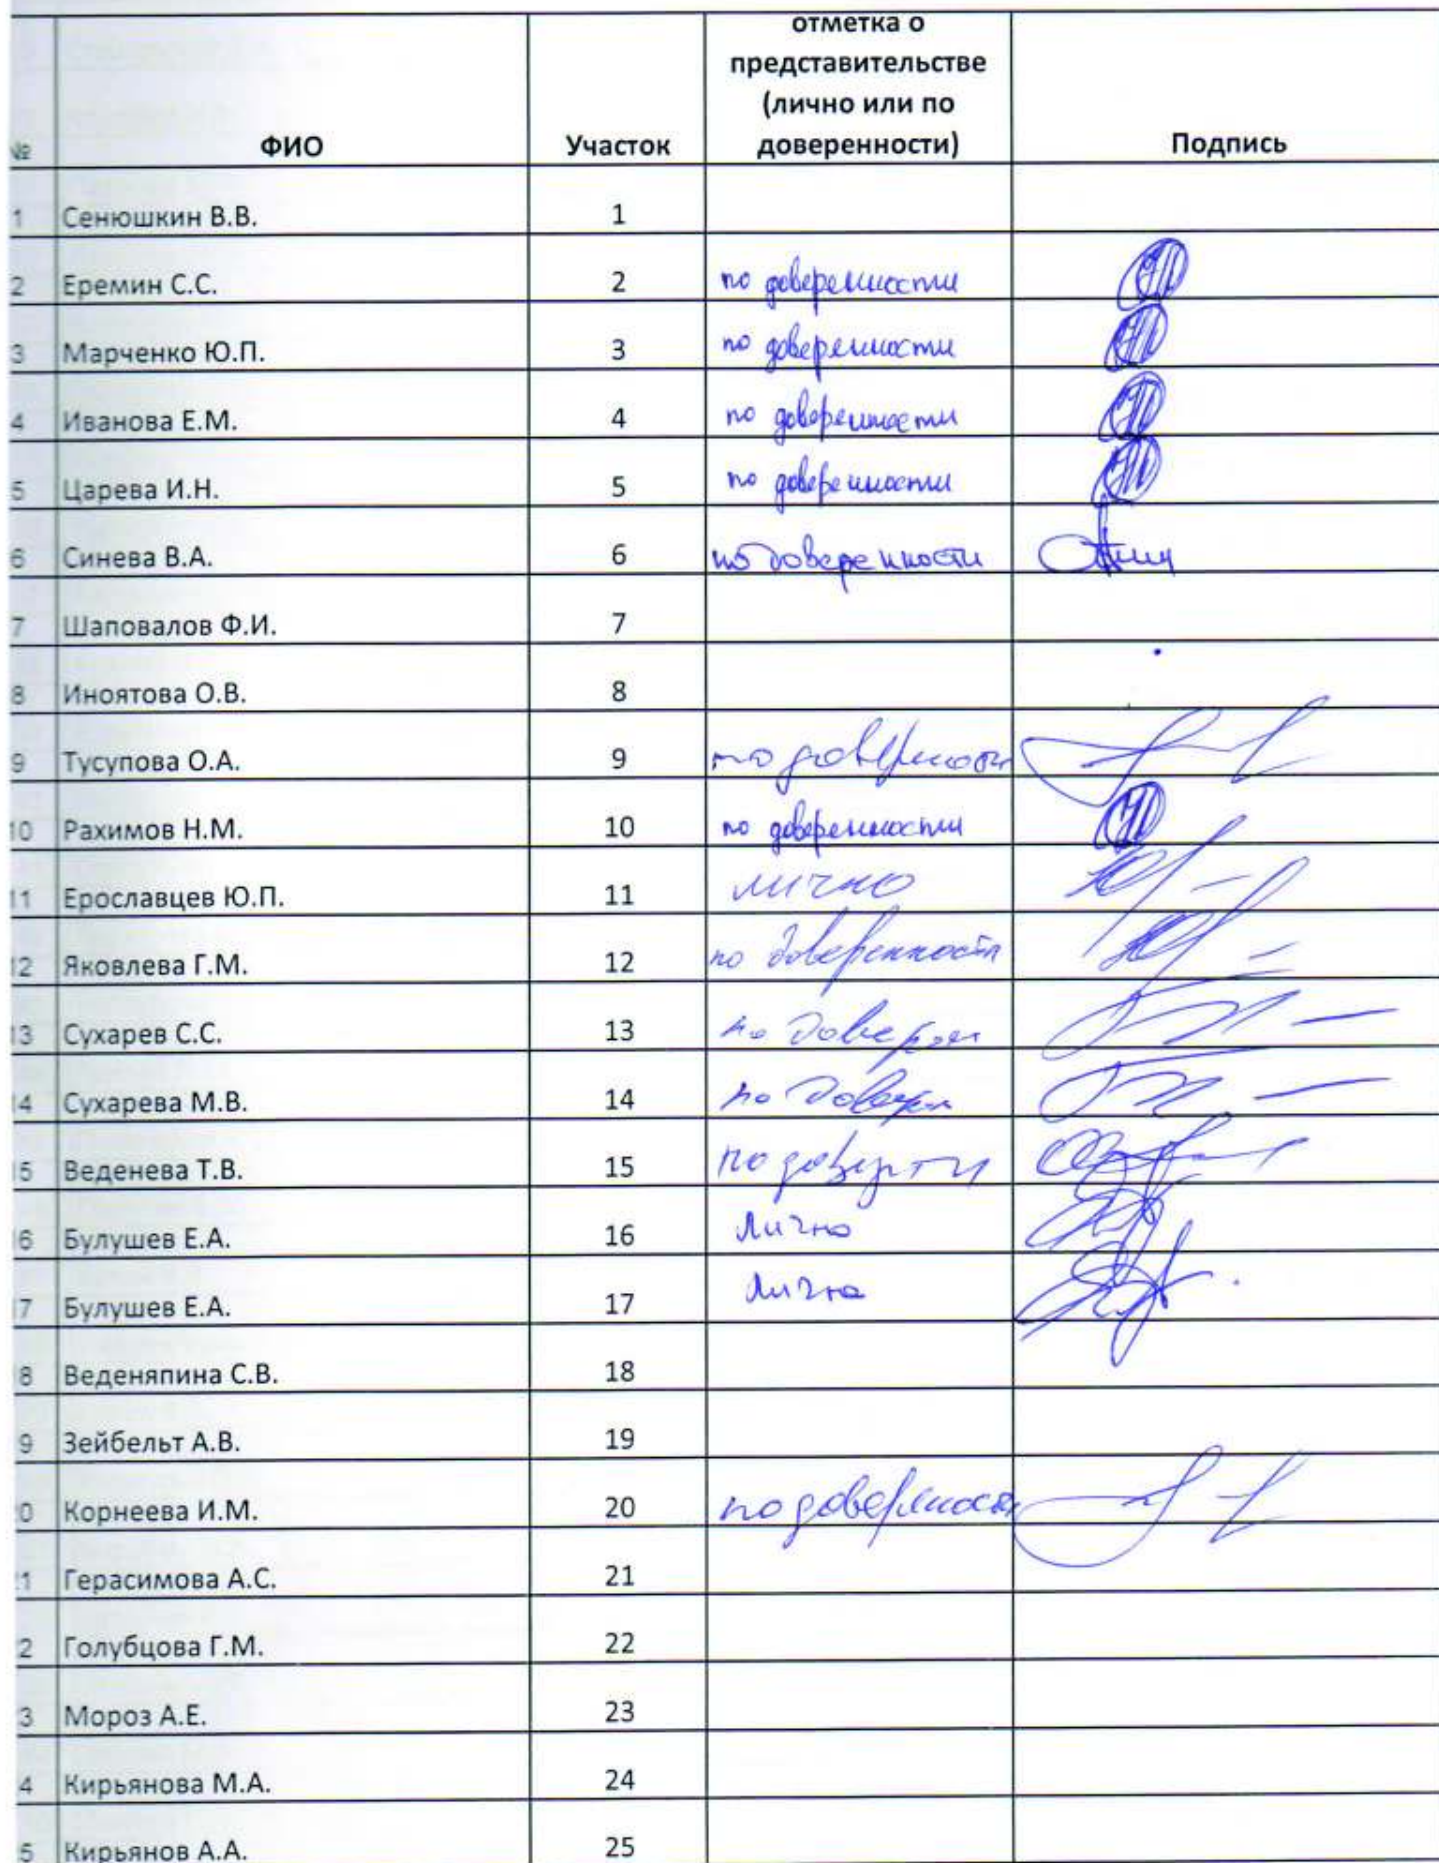 отметка о
представительстве
(лично или по
№ ФИО Участок доверенности) Подпись
1 Сенюшкин В.В. 1
2 Еремин С.С. 2 по доверенности
3 Марченко Ю.П. 3 по доверенности
4 Иванова Е.М. 4 по доверенности
5 Царева И.Н. 5 по доверенности
6 Синева В.А. 6 по доверенности
7 Шаповалов Ф.И. 7
8 Иноятова О.В. 8
9 Тусупова О.А. 9 по доверености
10 Рахимов Н.М. 10 по доверенности
11 Ерославцев Ю.П. 11 лично
12 Яковлева Г.М. 12 по доверенности
13 Сухарев С.С. 13 по
14 Сухарева М.В. 14 по
15 Веденева Т.В. 15 по
16 Булушев Е.А. 16 Лично
17 Булушев Е.А. 17 Лично
8 Веденяпина С.В. 18
9 Зейбельт А.В. 19
0 Корнеева И.М. 20 по доверености
1 Герасимова А.С. 21
2 Голубцова Г.М. 22
3 Мороз А.Е. 23
4 Кирьянова М.А. 24
5 Кирьянов А.А. 25